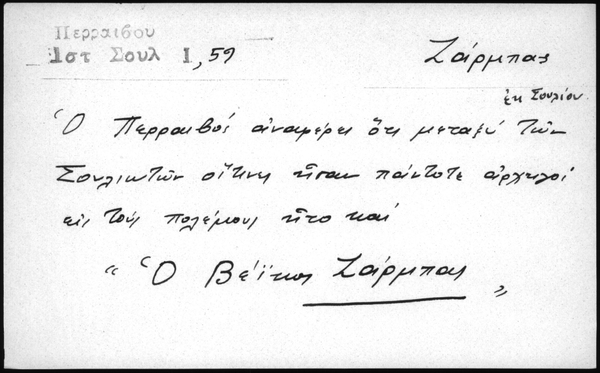 Περραιβού
Ιστ Σουλ Ι, 59
Ζάρμπας
ἐκ Σουλίου.
Ὁ Περραιβός ἀναφέρει ὅτι μεταξύ τῶν
Σουλιωτῶν οἵτινες ἦσαν πάντοτε ἀρχηγοί
εἰς τούς πολέμους ἦτο καί
“ Ὁ Βέϊκος Ζάρμπας „